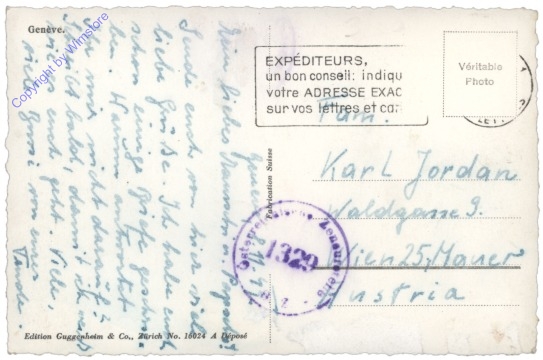 Genève.
Copyright by Wimstore
EXPÉDITEURS,
un bon conseil: indiqu
votre ADRESSE EXAC
sur vos lettres et ca
Véritable
Photo
Fam.
Karl Jordan
Waldgasse 9.
Wien 25, Mauer
Austria
Österreichische Zensurstelle
1329
Fabrication Suisse
Mein liebes
Sende euch von hier viele
liebe Grüße. Ich habe euch
schon einige geschrie
ben. Warum antwortet
ihr mir nicht darauf?
bald, damit ich weiß
wie es euch geht. Viele,
viele von eurer
Tante.
Edition Guggenheim & Co., Zürich No. 16024 A Déposé